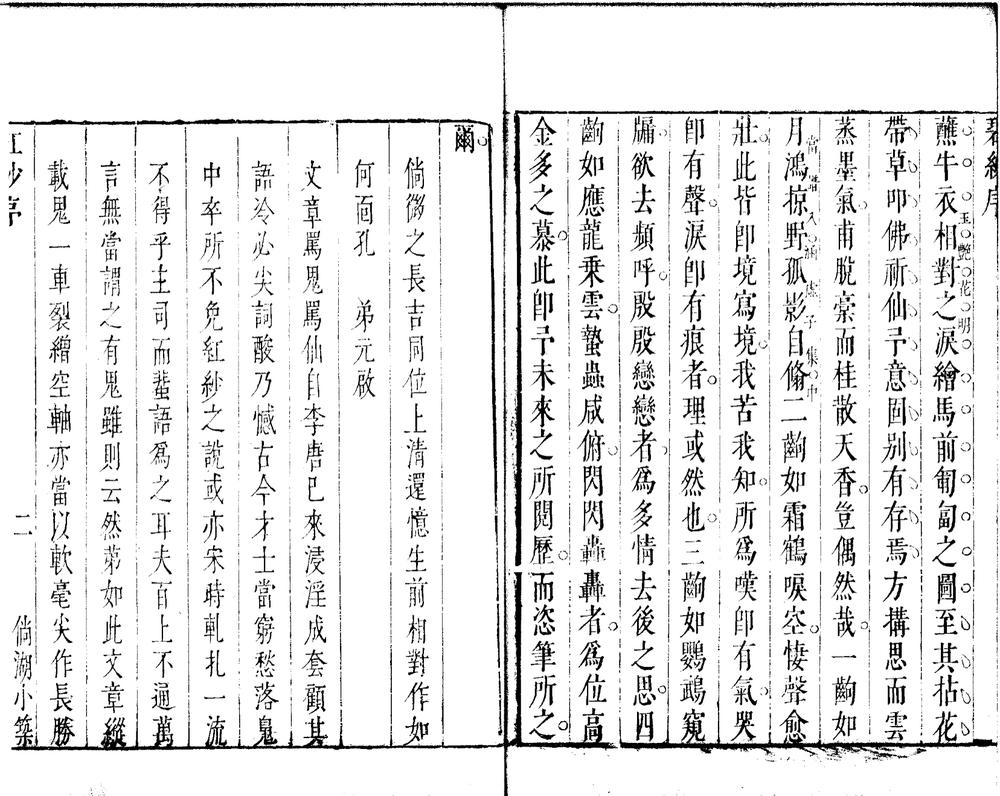 碧紗序
蘸牛衣相對之淚繪馬前匍匐之圖至其拈花
帶草叩佛祈仙予意固别有存焉方搆思而雲
蒸墨氣甫脫稾而桂散天香豈偶然哉一齣如
月鴻掠野孤影自翛二齣如霜鶴唳空悽聲愈
壯此皆卽境寫境我苦我知所爲嘆卽有氣哭
卽有聲淚卽有痕者理或然也三齣如鸚鵡窺
牖欲去頻呼殷殷戀戀者爲多情去後之思四
齣如應龍乘雲蟄蟲咸俯閃閃轟轟者爲位高
金多之慕此卽予未來之所閱歷而恣筆所之
爾
倘微之長吉同位上清還憶生前相對作如
何面孔 弟元啟
文章罵鬼罵仙自李唐已來浸淫成套顧其
語冷必尖詞酸乃憾古今才士當窮愁落鬼
中卒所不免紅紗之說或亦宋時軋扎一流
不得乎主司而蜚語爲之耳夫百上不逼萬
言無當謂之有鬼雖則云然第如此文章縱
載鬼一車裂繒空軸亦當以軟毫尖作長勝
紅紗序 二 倘湖小築